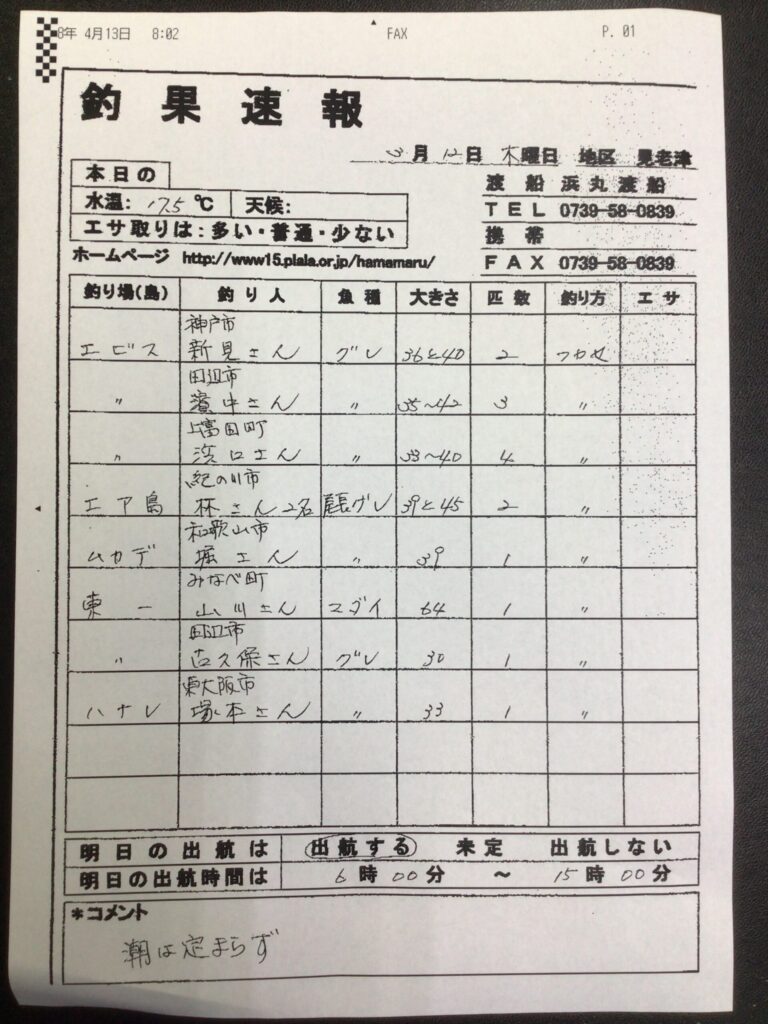 8年 4月13日 8:02 FAX P. 01
釣果速報
3月12日 木曜日 地区 見老津
本日の
水温: 17.5℃ 天候:
エサ取りは:多い・普通・少ない
渡船 浜丸渡船
TEL 0739-58-0839
携帯
FAX 0739-58-0839
ホームページ http://www15.plala.or.jp/hamamaru/
釣り場(島) 釣り人 魚種 大きさ 匹数 釣り方 エサ
神戸市
エビス 新見さん グレ 36と40 2 フカセ
田辺市
〃 濱中さん 〃 35~42 3 〃
上富田町
〃 浜口さん 〃 33~40 4 〃
紀の川市
エア島 林さん2名 尾長グレ 39と45 2 〃
和歌山市
ムカデ 堀さん 〃 39 1 〃
みなべ町
東一 山川さん マダイ 64 1 〃
田辺市
〃 古久保さん グレ 30 1 〃
東大阪市
ハナレ 塚本さん 〃 33 1 〃
明日の出航は 出航する 未定 出航しない
明日の出航時間は 6時00分 ~ 15時00分
*コメント
潮は定まらず